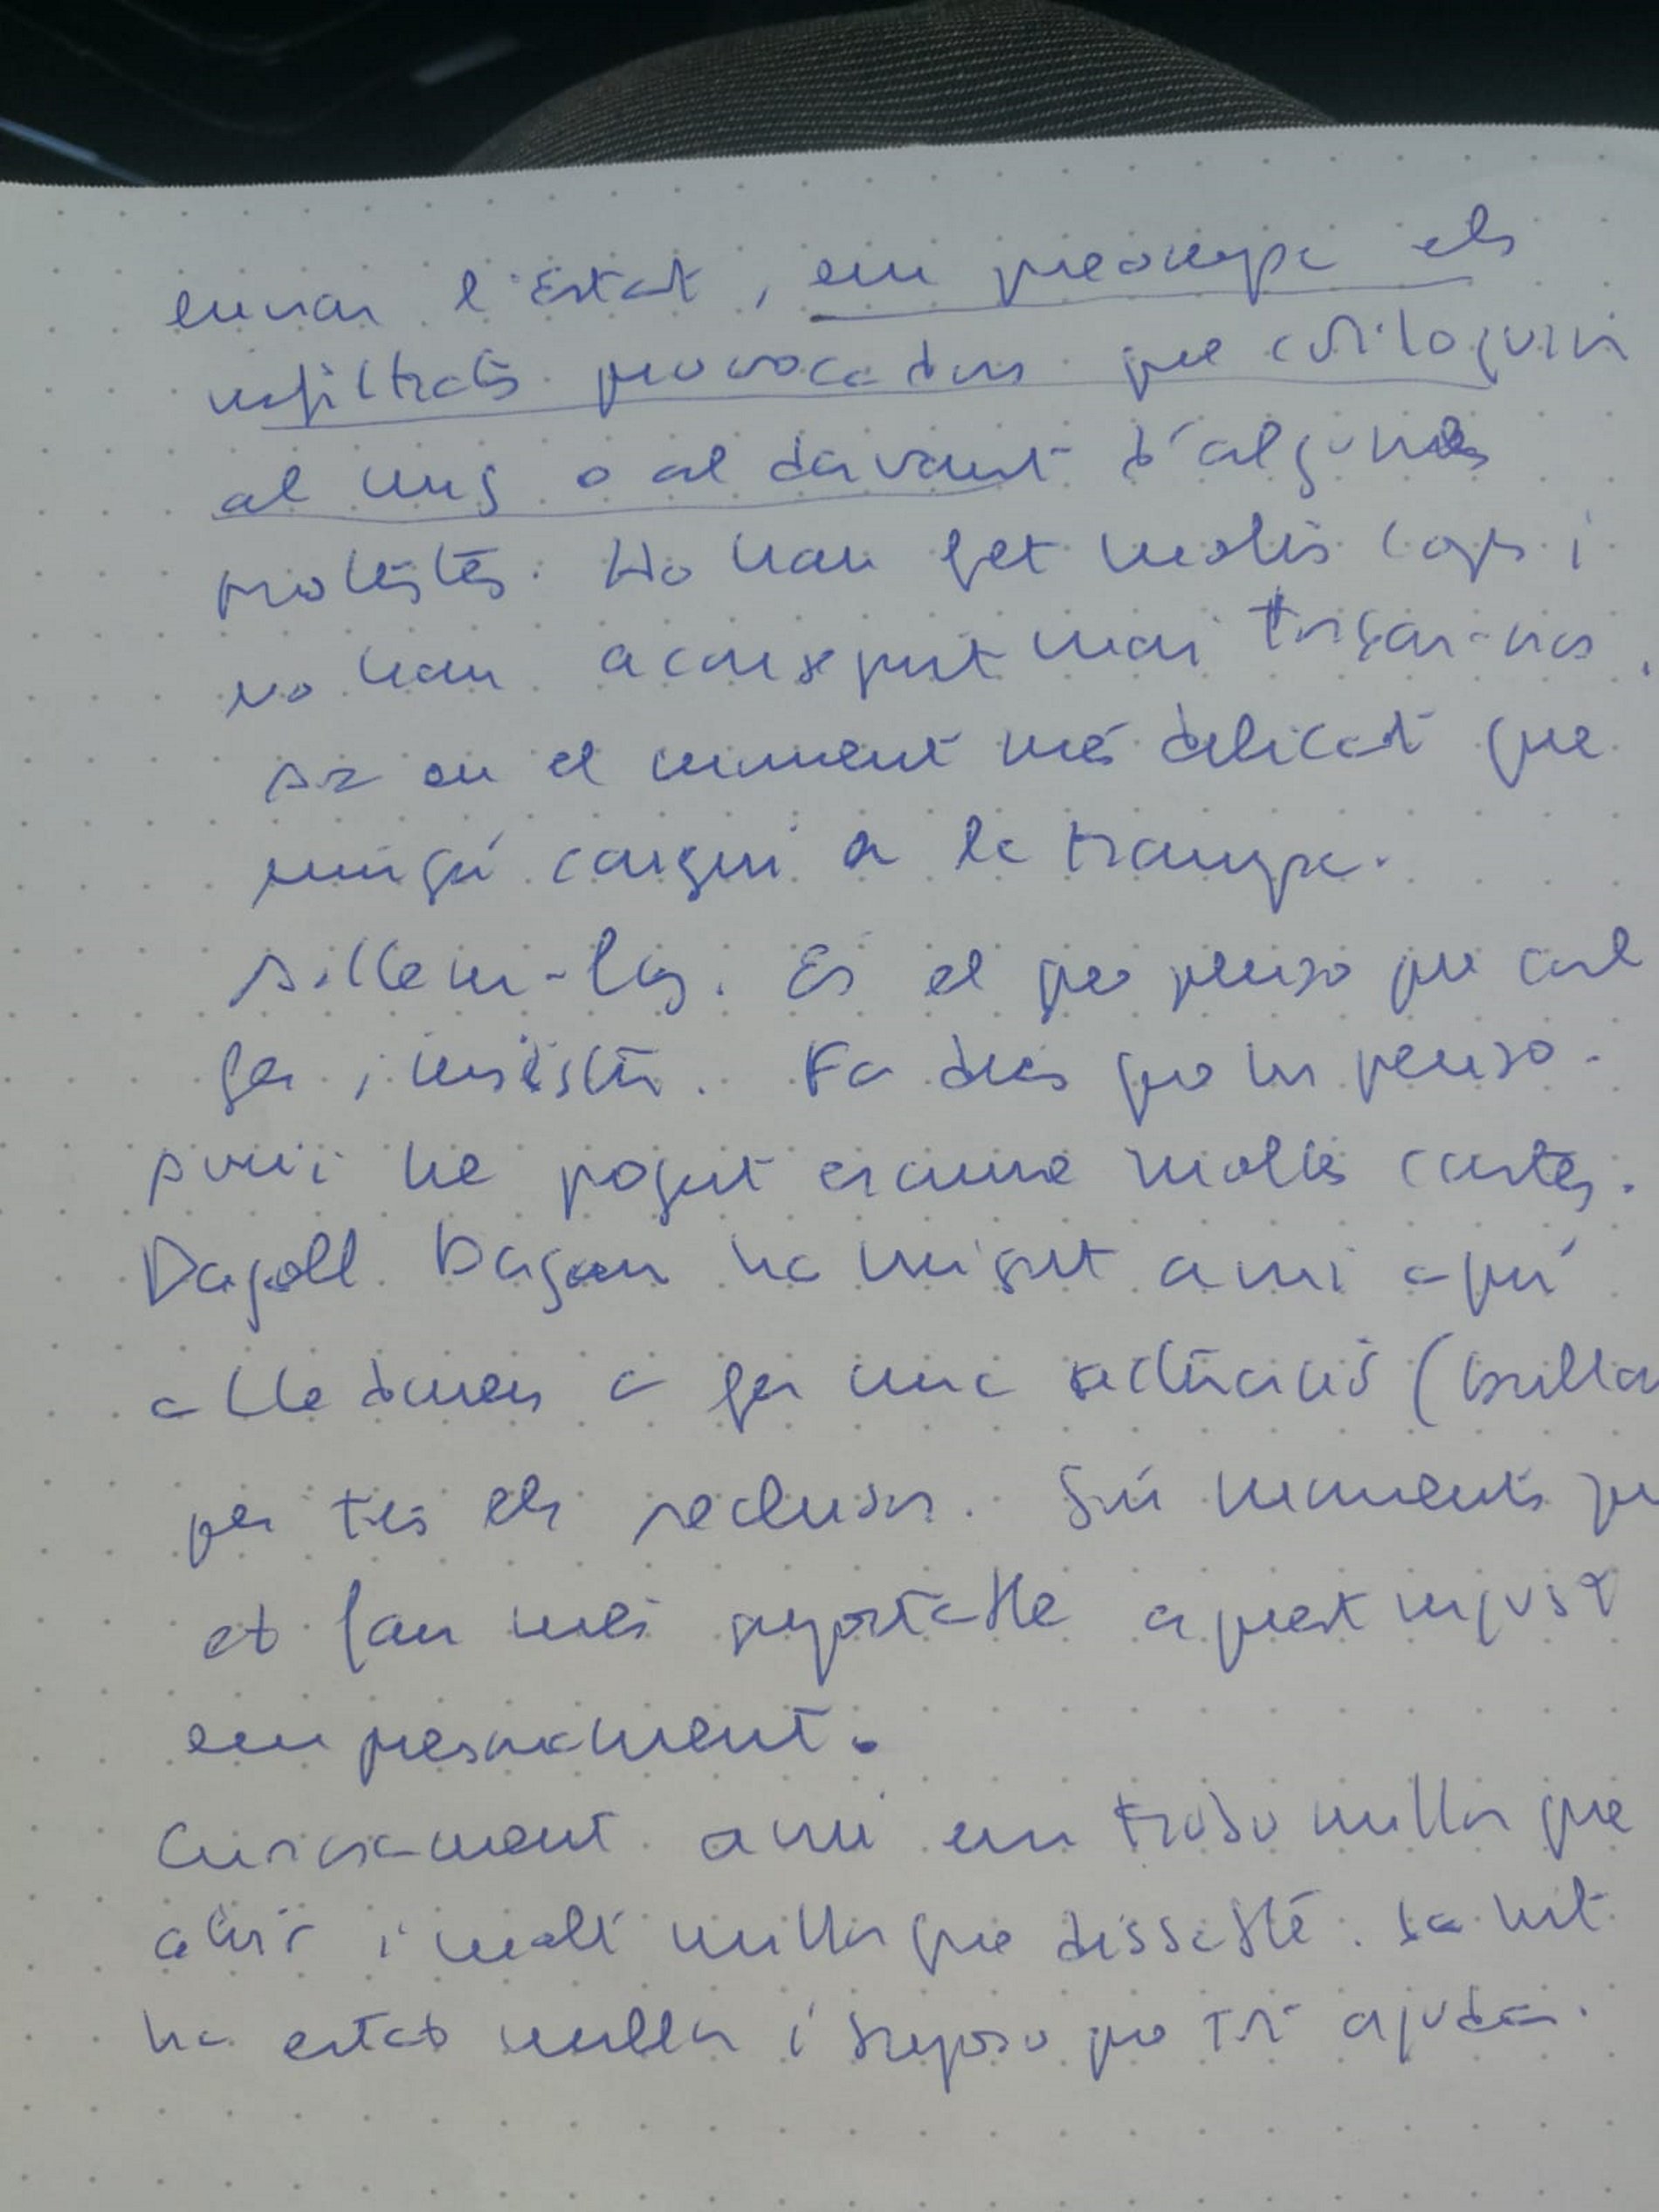 enviar l'Estat, em preocupa els
infiltrats provocadors que col·loquin
al mig o al davant d'algunes
protestes. Ho han fet molts cops i
no han aconseguit mai trencar-nos.
en el moment més delicat que
ningú caigui a la trampa.
Aïllem-los. És el que penso que cal
fer i insistir. Fa dies que ho penso.
Avui he pogut escriure moltes cartes.
Dagoll Dagom ha vingut avui aquí
a Lledoners a fer una actuació (brillant
per tots els reclusos. Són moments que
et fan més suportable aquest injust
empresonament.
Curiosament avui em trobo millor que
ahir i molt millor que dissabte. La nit
ha estat millor i suposo que tot ajuda.